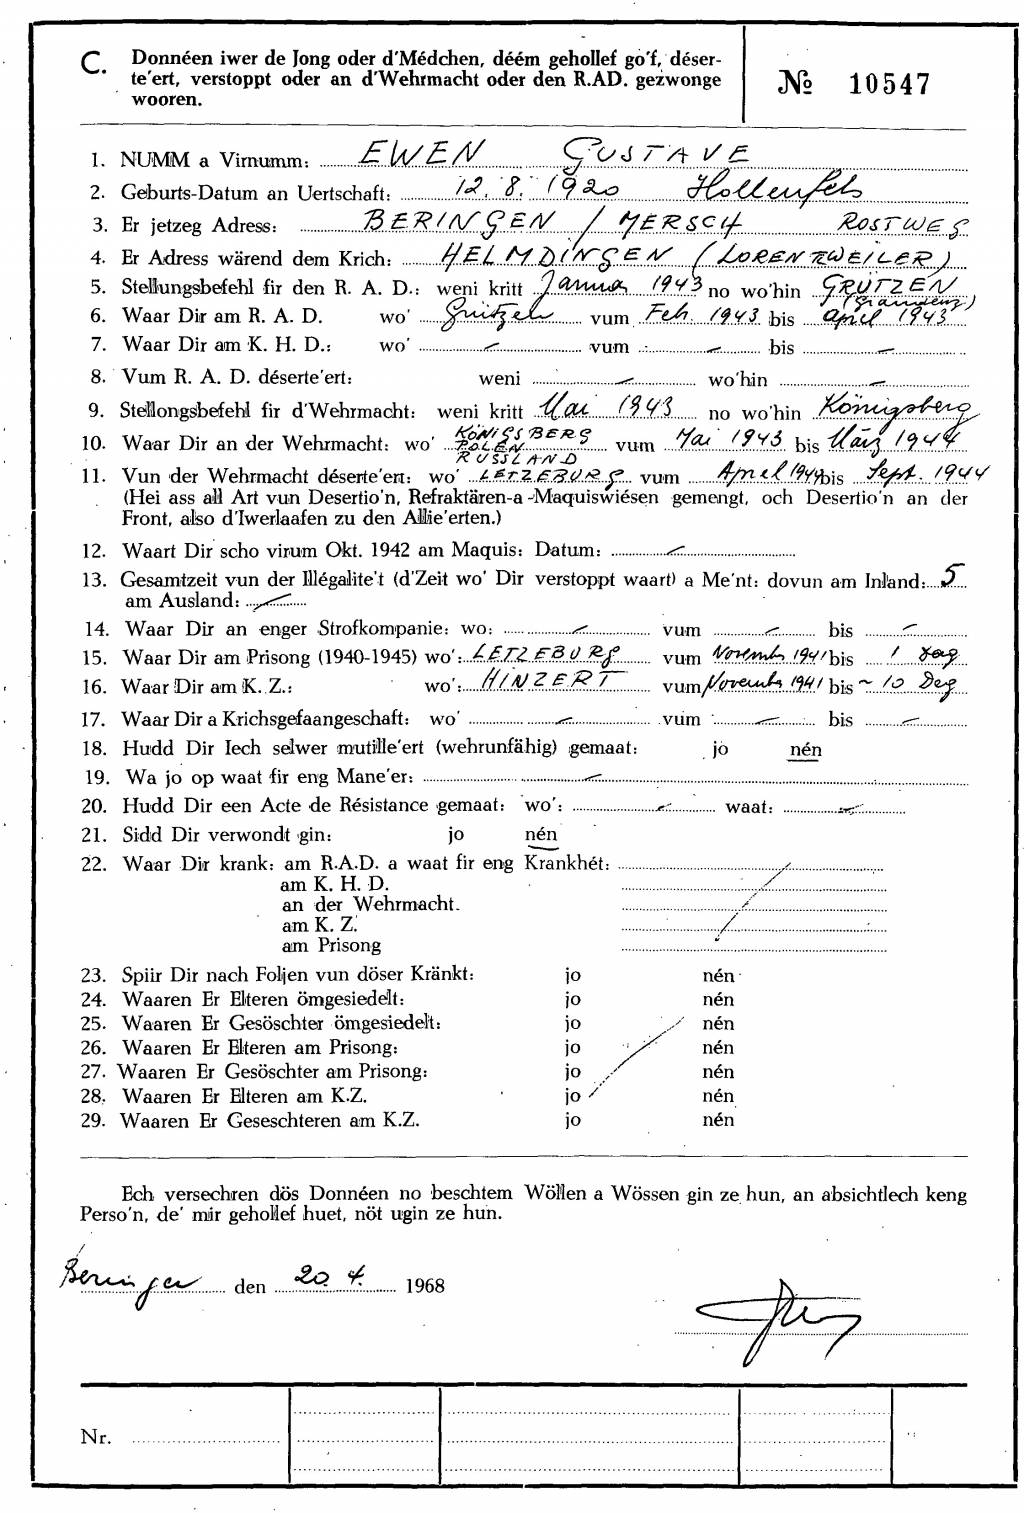 C. Donnéen iwer de Jong oder d'Médchen, déém gehollef go'f, déser-
te'ert, verstoppt oder an d'Wehrmacht oder den R.AD. gezwonge
wooren.
№ 10547
1. NUMM a Virnumm: EWEN GUSTAVE
2. Geburts-Datum an Uertschaft: 12. 8. 1920 Hollenfels
3. Er jetzeg Adress: BERINGEN / MERSCH ROSTWEG
4. Er Adress wärend dem Krich: HELMDINGEN (LORENTZWEILER)
5. Stellungsbefehl fir den R. A. D.: weni kritt Januar 1943 no wo'hin GRUTZEN
(Graudenz)
6. Waar Dir am R. A. D. wo' Grutzen vum Feb. 1943 bis April 1943
7. Waar Dir am K. H. D.: wo' – vum – bis –
8. Vum R. A. D. déserte'ert: weni – wo'hin –
9. Stellongsbefehl fir d'Wehrmacht: weni kritt Mai 1943 no wo'hin Königsberg
10. Waar Dir an der Wehrmacht: wo' KÖNIGSBERG POLEN RUSSLAND vum Mai 1943 bis März 1944
11. Vun der Wehrmacht déserte'ert: wo' LETZEBURG vum April 1944 bis Sept. 1944
(Hei ass all Art vun Desertio'n, Refraktären-a-Maquiswiésen gemengt, och Desertio'n an der
Front, also d'Iwerlaafen zu den Allie'erten.)
12. Waart Dir scho virum Okt. 1942 am Maquis: Datum: –
13. Gesamtzeit vun der Illégalite't (d'Zeit wo' Dir verstoppt waart) a Me'nt: dovun am Inland: 5
am Ausland: –
14. Waar Dir an enger Strofkompanie: wo: – vum – bis –
15. Waar Dir am Prisong (1940-1945) wo': LETZEBURG vum November 1941 bis 1 Dag
16. Waar Dir am K. Z.: wo': HINZERT vum November 1941 bis ~ 10 Deg
17. Waar Dir a Krichsgefaangeschaft: wo' – vum – bis –
18. Hudd Dir Iech selwer mutille'ert (wehrunfähig) gemaat: jo nén
19. Wa jo op waat fir eng Mane'er: –
20. Hudd Dir een Acte de Résistance gemaat: wo': – waat: –
21. Sidd Dir verwondt gin: jo nén
22. Waar Dir krank: am R.A.D. a waat fir eng Krankhét:
am K. H. D.
an der Wehrmacht.
am K. Z.
am Prisong
23. Spiir Dir nach Foljen vun döser Kränkt: jo nén
24. Waaren Er Elteren ömgesiedelt: jo nén
25. Waaren Er Gesöschter ömgesiedelt: jo nén
26. Waaren Er Elteren am Prisong: jo nén
27. Waaren Er Gesöschter am Prisong: jo nén
28. Waaren Er Elteren am K.Z. jo nén
29. Waaren Er Geseschteren am K.Z. jo nén
Ech versechren dös Donnéen no beschtem Wöllen a Wössen gin ze hun, an absichtlech keng
Perso'n, de' mir gehollef huet, nöt ugin ze hun.
Beringen den 20. 4. 1968
Nr.